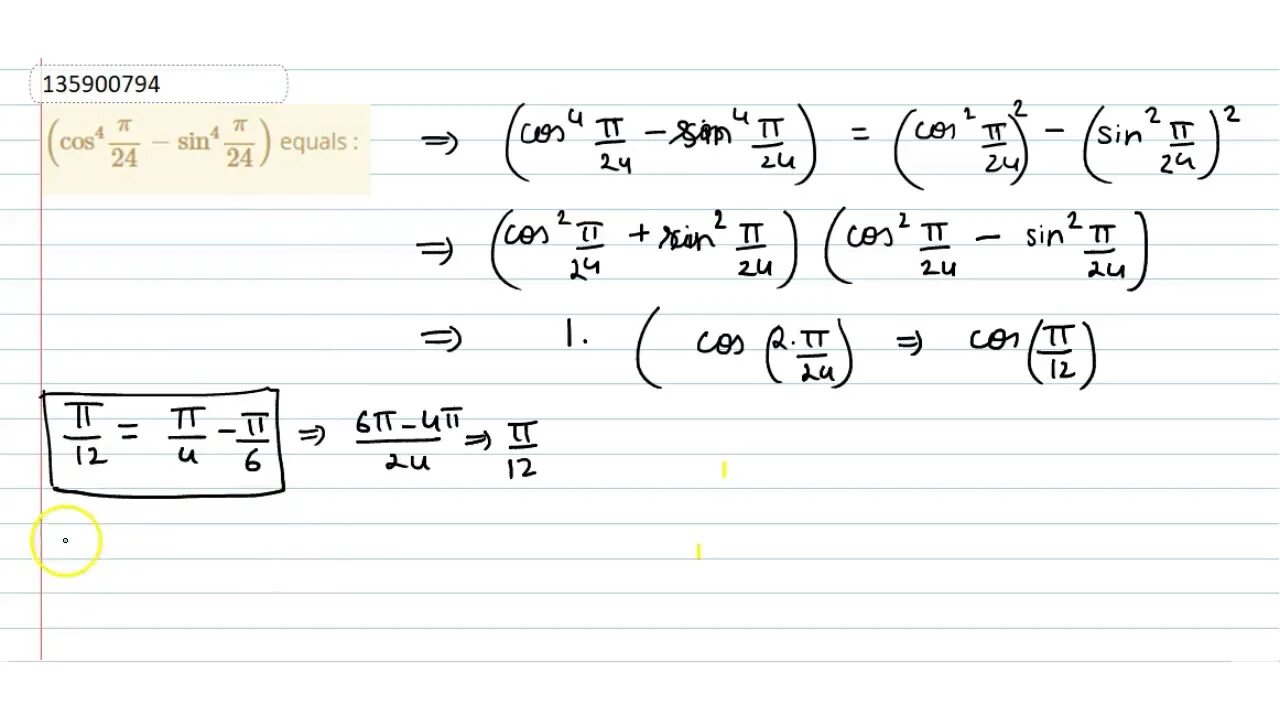 135900794
(cos⁴ π/24 − sin⁴ π/24) equals :
⇒ (cos⁴ π/24 − sin⁴ π/24) = (cos² π/24)² − (sin² π/24)²
⇒ (cos² π/24 + sin² π/24) (cos² π/24 − sin² π/24)
⇒ 1. ( cos (2·π/24) ⇒ cos (π/12)
π/12 = π/4 − π/6 ⇒ 6π − 4π/24 ⇒ π/12